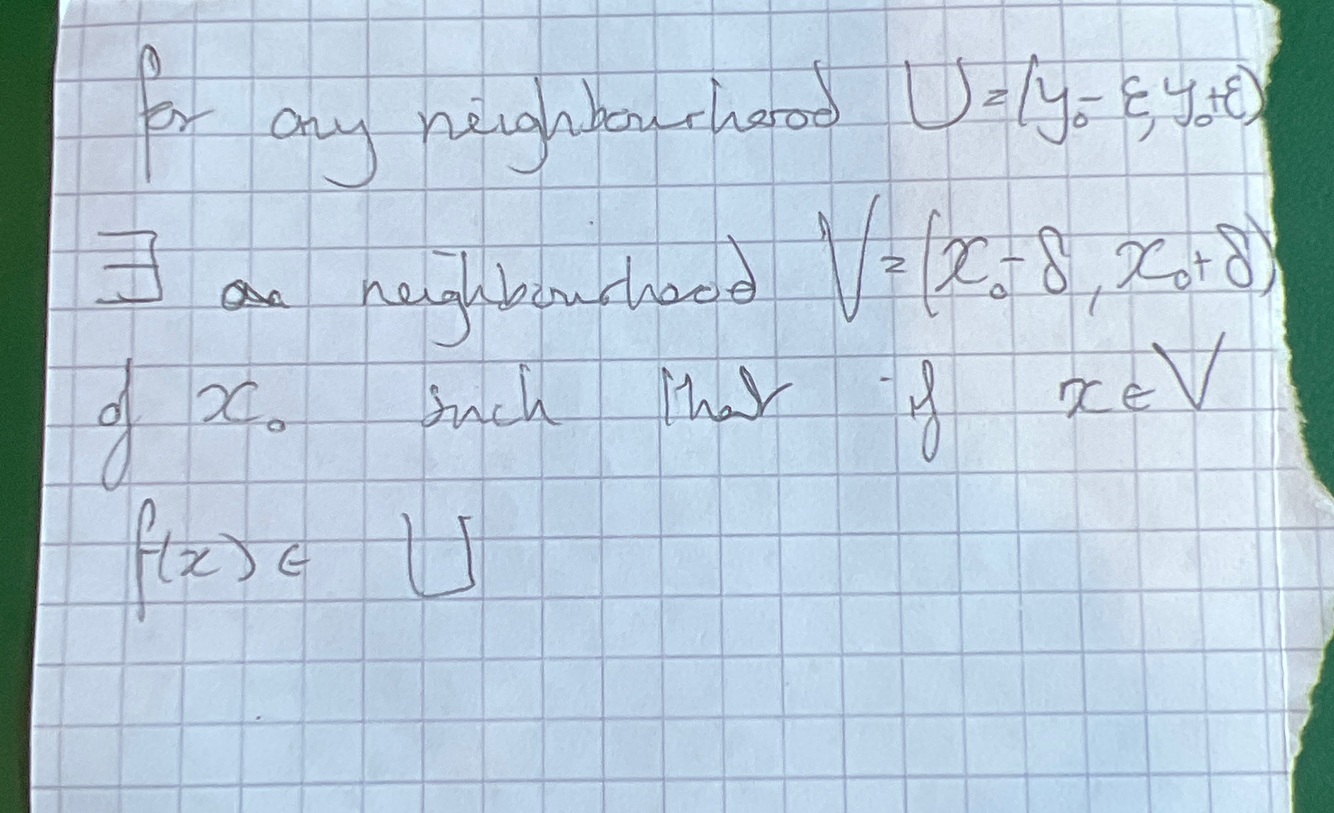 for any neighbourhood U=(y₀-ε, y₀+ε)
∃ a neighbourhood V=(x₀-δ, x₀+δ)
of x₀ such that if x∈V
f(x)∈ U